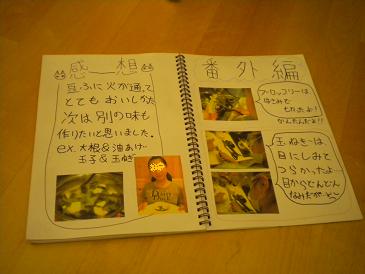 感想
豆ふに火が通って
とてもおいしかった
次は別の味も
作りたいと思いました。
ex. 大根&油あげ
玉子&玉ねぎ
番外編
ブロッコリーは
はさみで
切ったよ!
かんたんだよ!!
玉ねぎは、
目にしみて
つらかったよ…
目からどんどん
なみだがー